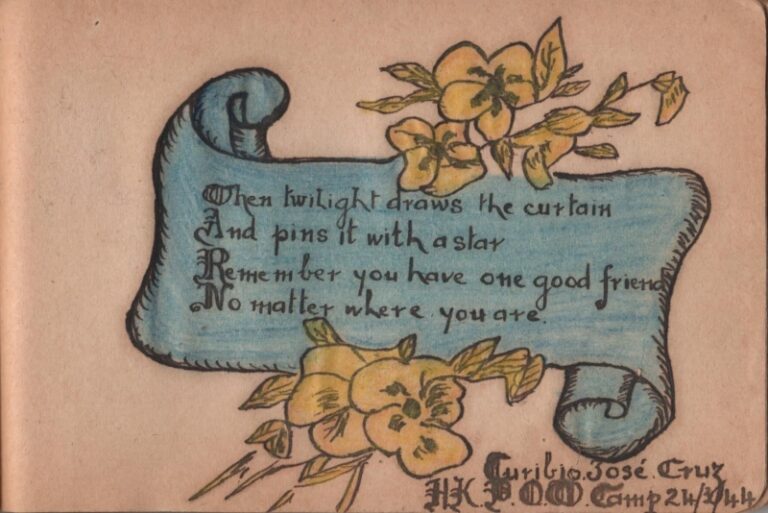 When twilight draws the curtain
And pins it with a star
Remember you have one good friend
No matter where you are.
José. Cruz
H.K. P.O.W. Camp